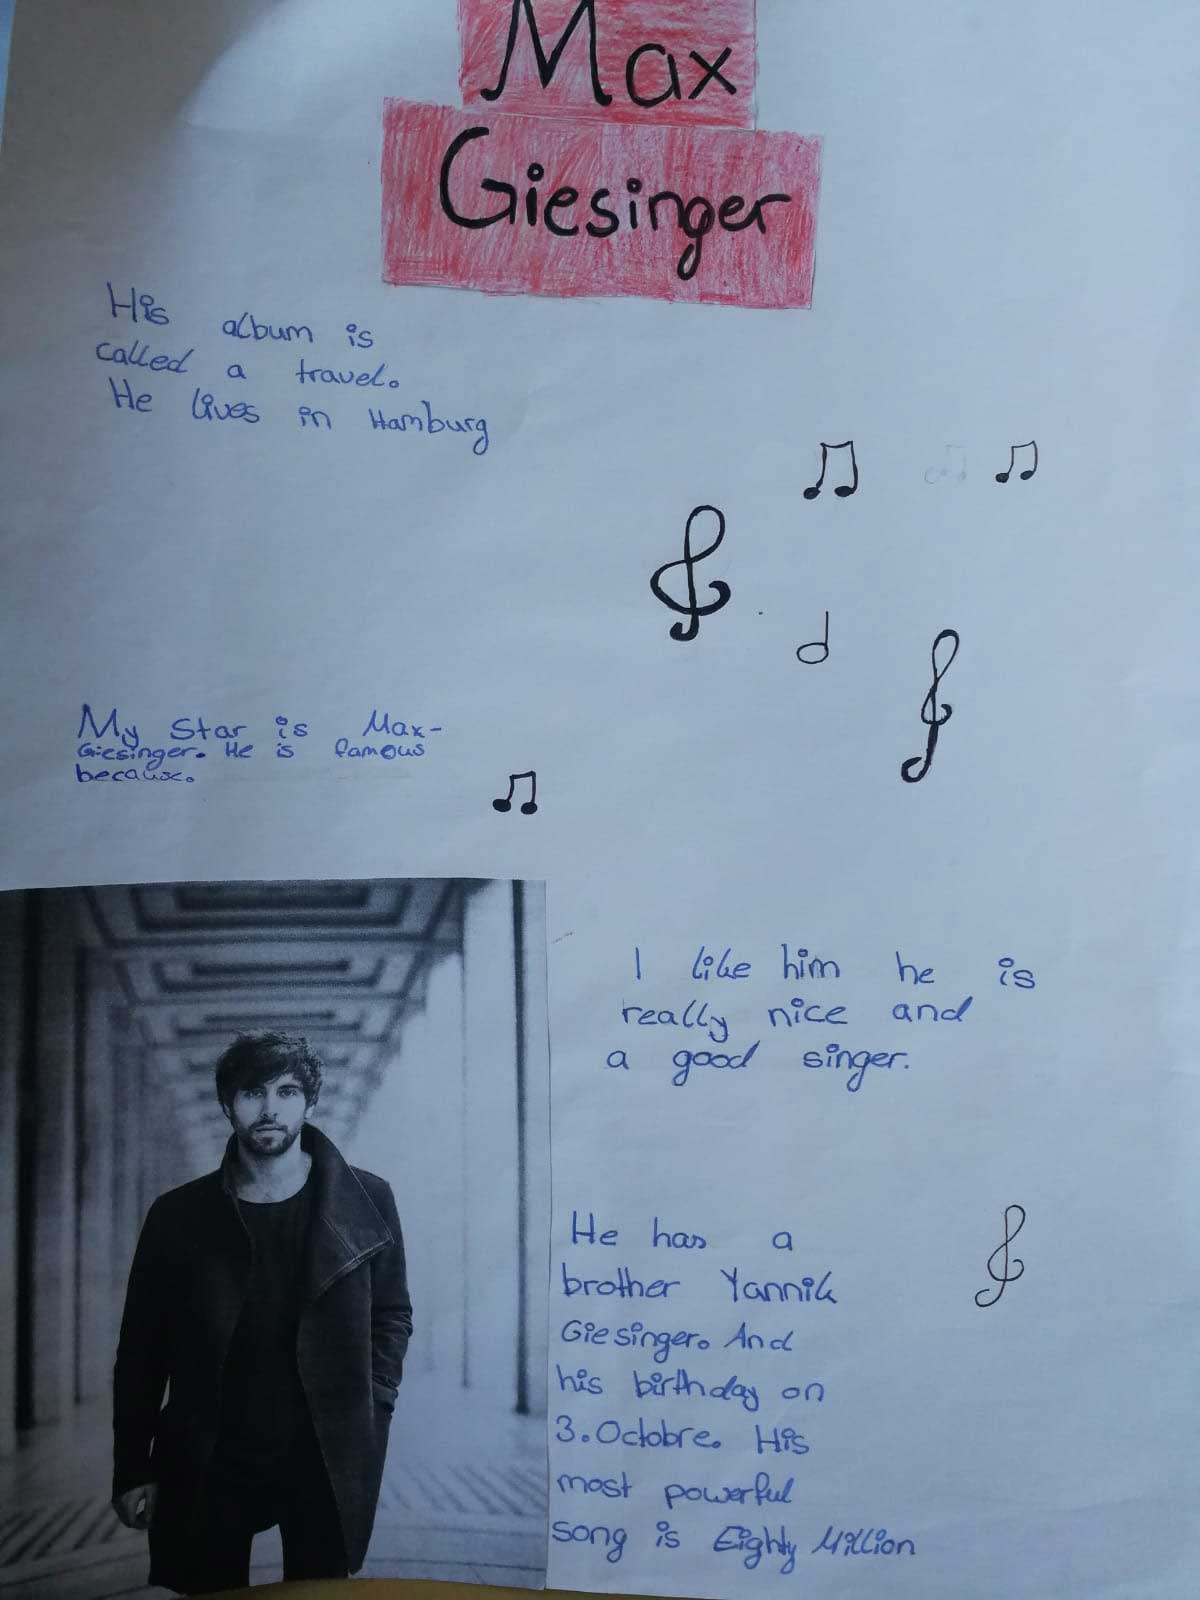 Max
Giesinger
His album is
called a travel.
He lives in Hamburg
My Star is Max-
Giesinger. He is famous
because.
I like him he is
really nice and
a good singer.
He has a
brother Yannik
Giesinger. And
his birthday on
3. Octobre. His
most powerful
song is Eighty Million